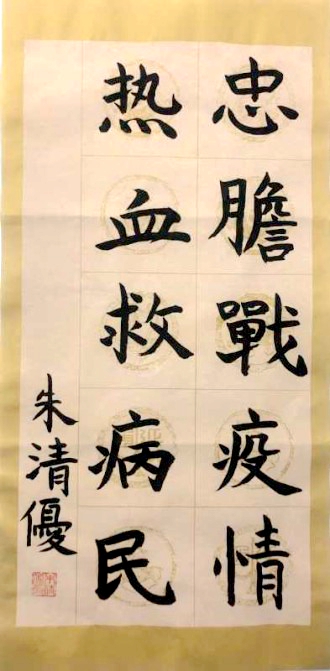 忠膽戰疫情
热血救病民
朱清優